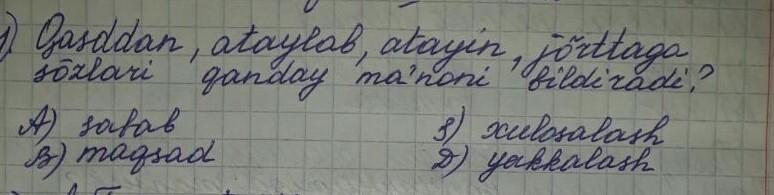 1) Qasddan, ataylab, atayin, jõrttaga
sõzlari qanday ma'noni bildiradi?
A) sabab S) xulosalash
B) maqsad D) yakkalash